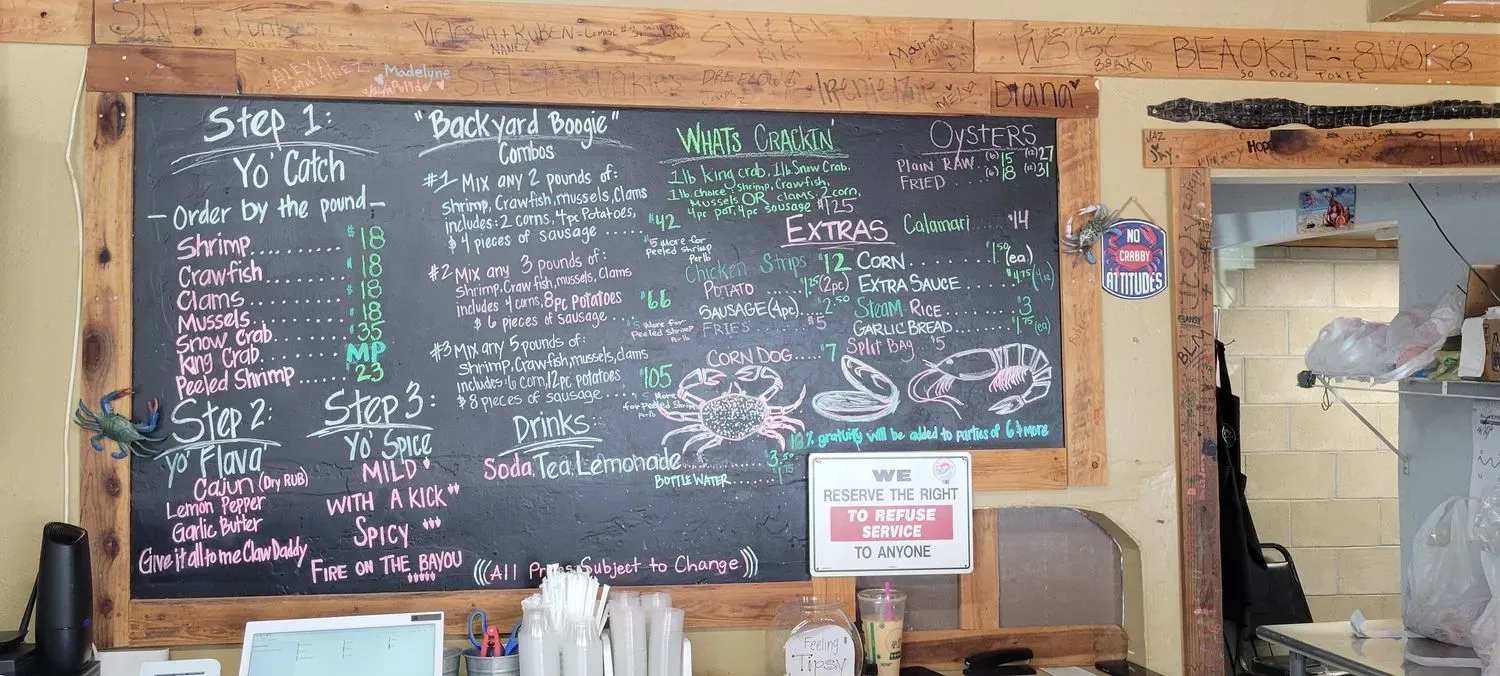 SALT Junkies
VICTORIA + RUBEN = COMBO #3
NANCY
KIKI
BEAOKTE
SO DOES TOKEE
ALEXA
MARTINEZ
Madelyne
Diana
Step 1:
Yo' Catch
- Order by the pound -
Shrimp ........ $18
Crawfish ........ $18
Clams ........ $18
Mussels ........ $18
Snow Crab ........ $35
King Crab ........ MP
Peeled Shrimp ..... $23
Step 2:
Yo' Flava'
Cajun (Dry RUB)
Lemon Pepper
Garlic Butter
Give it all to me Claw Daddy
Step 3:
Yo' Spice
MILD
WITH A KICK
SPICY
FIRE ON THE BAYOU
"Backyard Boogie"
Combos
#1 Mix any 2 pounds of:
Shrimp, Crawfish, mussels, Clams
includes: 2 corns, 4pc Potatoes,
& 4 pieces of sausage ..... $42
$5 More for
peeled Shrimp
Per lb
#2 Mix any 3 pounds of:
Shrimp, Crawfish, mussels, Clams
includes 4 corns, 8pc potatoes
& 6 pieces of sausage .... $66
$5 More for
Peeled Shrimp
Per lb
#3 Mix any 5 pounds of:
Shrimp, Crawfish, mussels, clams
includes: 6 corn, 12pc potatoes
& 8 pieces of sausage ..... $105
$5 More
for Peeled Shrimp
Per lb
Drinks
Soda, Tea, Lemonade ..... 3.50
BOTTLE WATER ....... 1.75
((All Prices Subject to Change))
WHATS CRACKIN'
1lb King crab, 1lb Snow Crab,
1lb choice, shrimp, Crawfish,
Mussels OR clams, 2 corn,
4pc pot, 4pc sausage $125
OYSTERS
PLAIN RAW .. (6) 15 (12) 27
FRIED ..... (6) 18 (12) 31
EXTRAS
Calamari ... $14
Chicken Strips $12
POTATO ....... $1.25 (2pc)
SAUSAGE (4pc) .. $2.50
FRIES ....... $5
CORN DOG .... $7
CORN ........ $1.50 (ea.)
EXTRA SAUCE ....... $4.75 (4oz)
Steam RICE ....... $3
GARLIC BREAD ...... $1.75 (ea)
Split Bag $5
18% gratuity will be added to parties of 6 & more
NO
CRABBY
ATTITUDES
WE
RESERVE THE RIGHT
TO REFUSE
SERVICE
TO ANYONE
Feeling
Tipsy